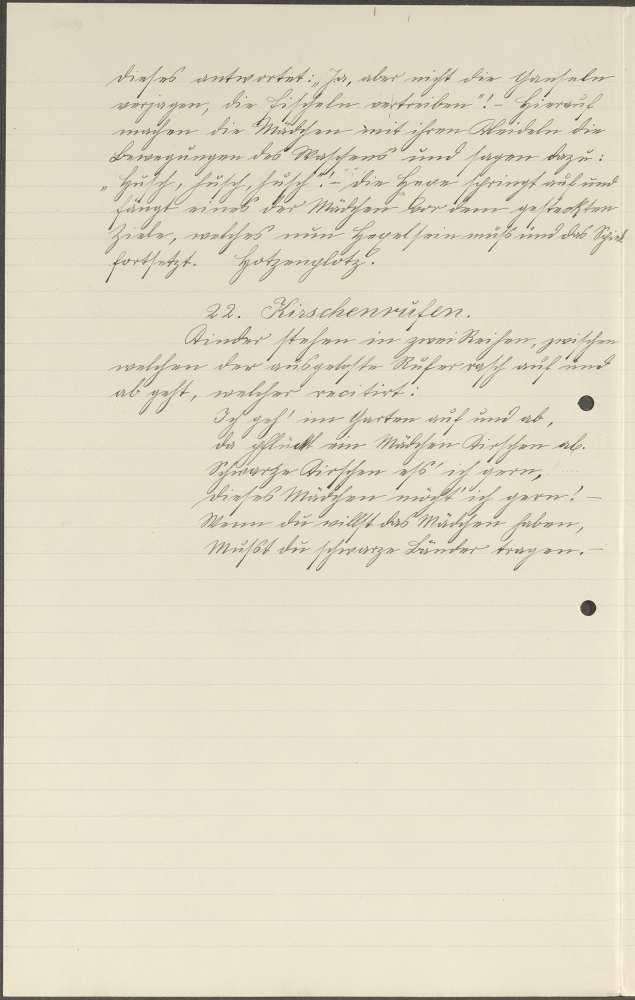 dieses antwortet: „Ja, aber nicht die Ganseln
verjagen, die Fischeln vertreiben"! – Hierauf
machen die Mädchen mit ihren Kleideln die
Bewegungen des Waschens und sagen dazu:
„Husch, husch, husch"! – Die Hexe springt auf und
fängt eines der Mädchen vor dem gesteckten
Ziele, welches nun Hexe sein muß und das Spiel
fortsetzt. Hotzenplotz.
22. Kirschenrufen.
Kinder stehen in zwei Reihen, zwischen
welchen der ausgeloste Rufer rasch auf und
ab geht, welcher recitirt:
Ich geh' im Garten auf und ab,
da pflückt ein Mädchen Kirschen ab.
Schwarze Kirschen ess' ich gern,
dieses Mädchen möcht' ich gern! –
Wenn du willst das Mädchen haben,
Mußt du schwarze Bänder tragen. –